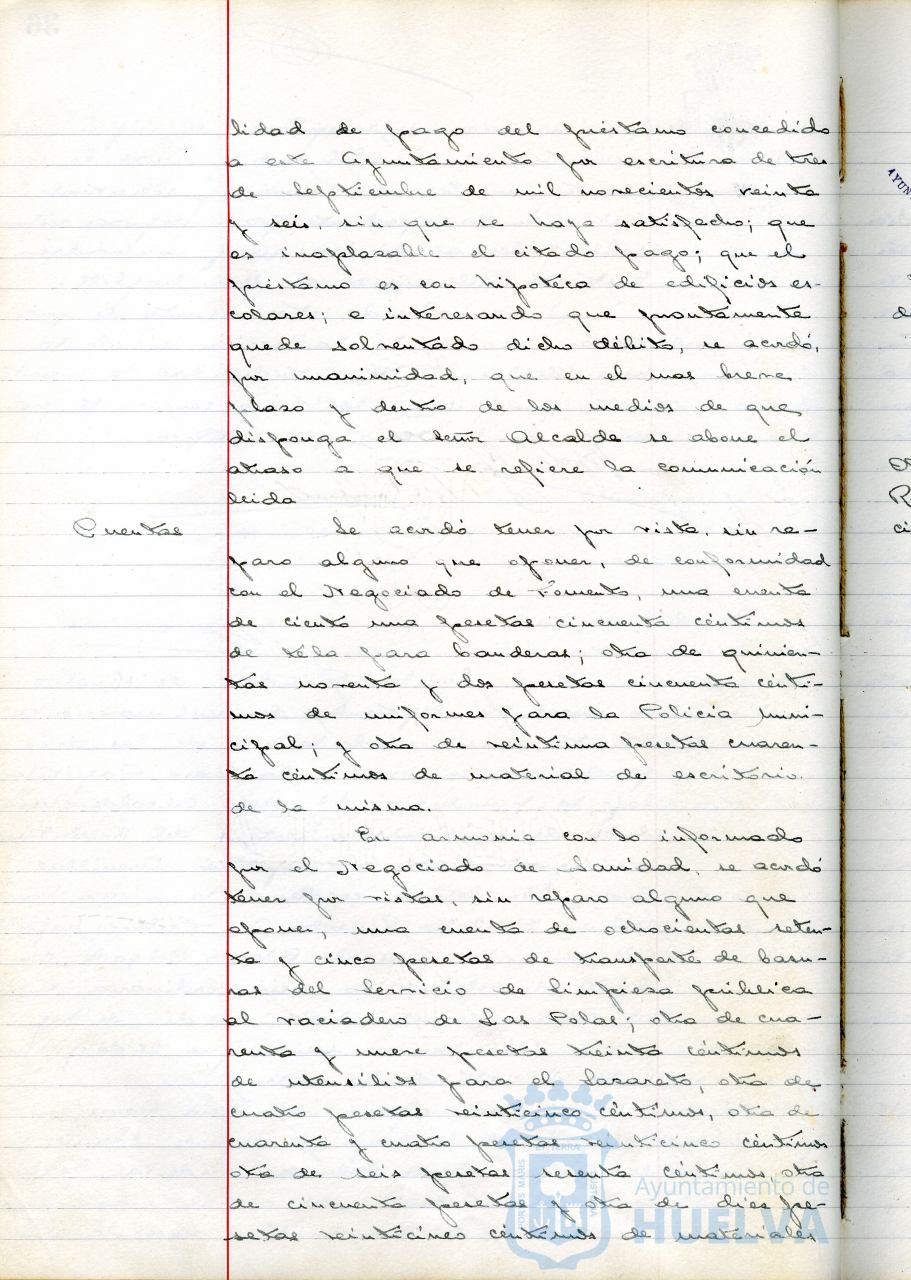 lidad de pago del préstamo concedido
a este Ayuntamiento por escritura de tres
de Septiembre de mil novecientos veinte
y seis, sin que se haya satisfecho; que
es inaplazable el citado pago; que el
préstamo es con hipoteca de edificios es-
colares; e interesando que prontamente
quede solventado dicho débito, se acordó,
por unanimidad, que en el mas breve
plazo y dentro de los medios de que
disponga el señor Alcalde se abone el
atraso a que se refiere la comunicación
leida
Cuentas Se acordó tener por vista, sin re-
paro alguno que oponer, de conformidad
con el Negociado de Fomento, una cuenta
de ciento una pesetas cincuenta céntimos
de tela para banderas; otra de quinien-
tas noventa y dos pesetas cincuenta cénti-
mos de uniformes para la Policía muni-
cipal; y otra de veintiuna pesetas cuaren-
ta céntimos de material de escritorio
de la misma.
En armonía con lo informado
por el Negociado de Sanidad, se acordó
tener por vistas, sin reparo alguno que
oponer, una cuenta de ochocientas seten-
ta y cinco pesetas de transporte de basu-
ras del Servicio de Limpieza pública
al vaciadero de Las Polas; otra de cua-
renta y nueve pesetas treinta céntimos
de utensilios para el Lazareto, otra de
cuatro pesetas veinticinco céntimos, otra de
cuarenta y cuatro pesetas veinticinco céntimos
otra de seis pesetas sesenta céntimos otra
de cincuenta pesetas y otra de diez pe-
setas veinticinco céntimos de materiales
Ayuntamiento de
HUELVA